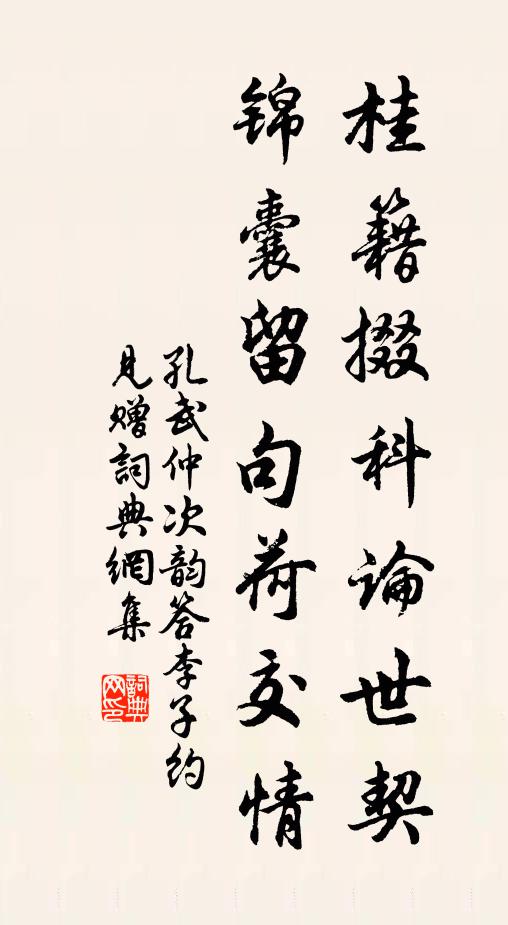 桂籍掇科論世契
锦囊留句荷交情
孔武仲次韵答李子约
見赠詞典網集
詞典网印